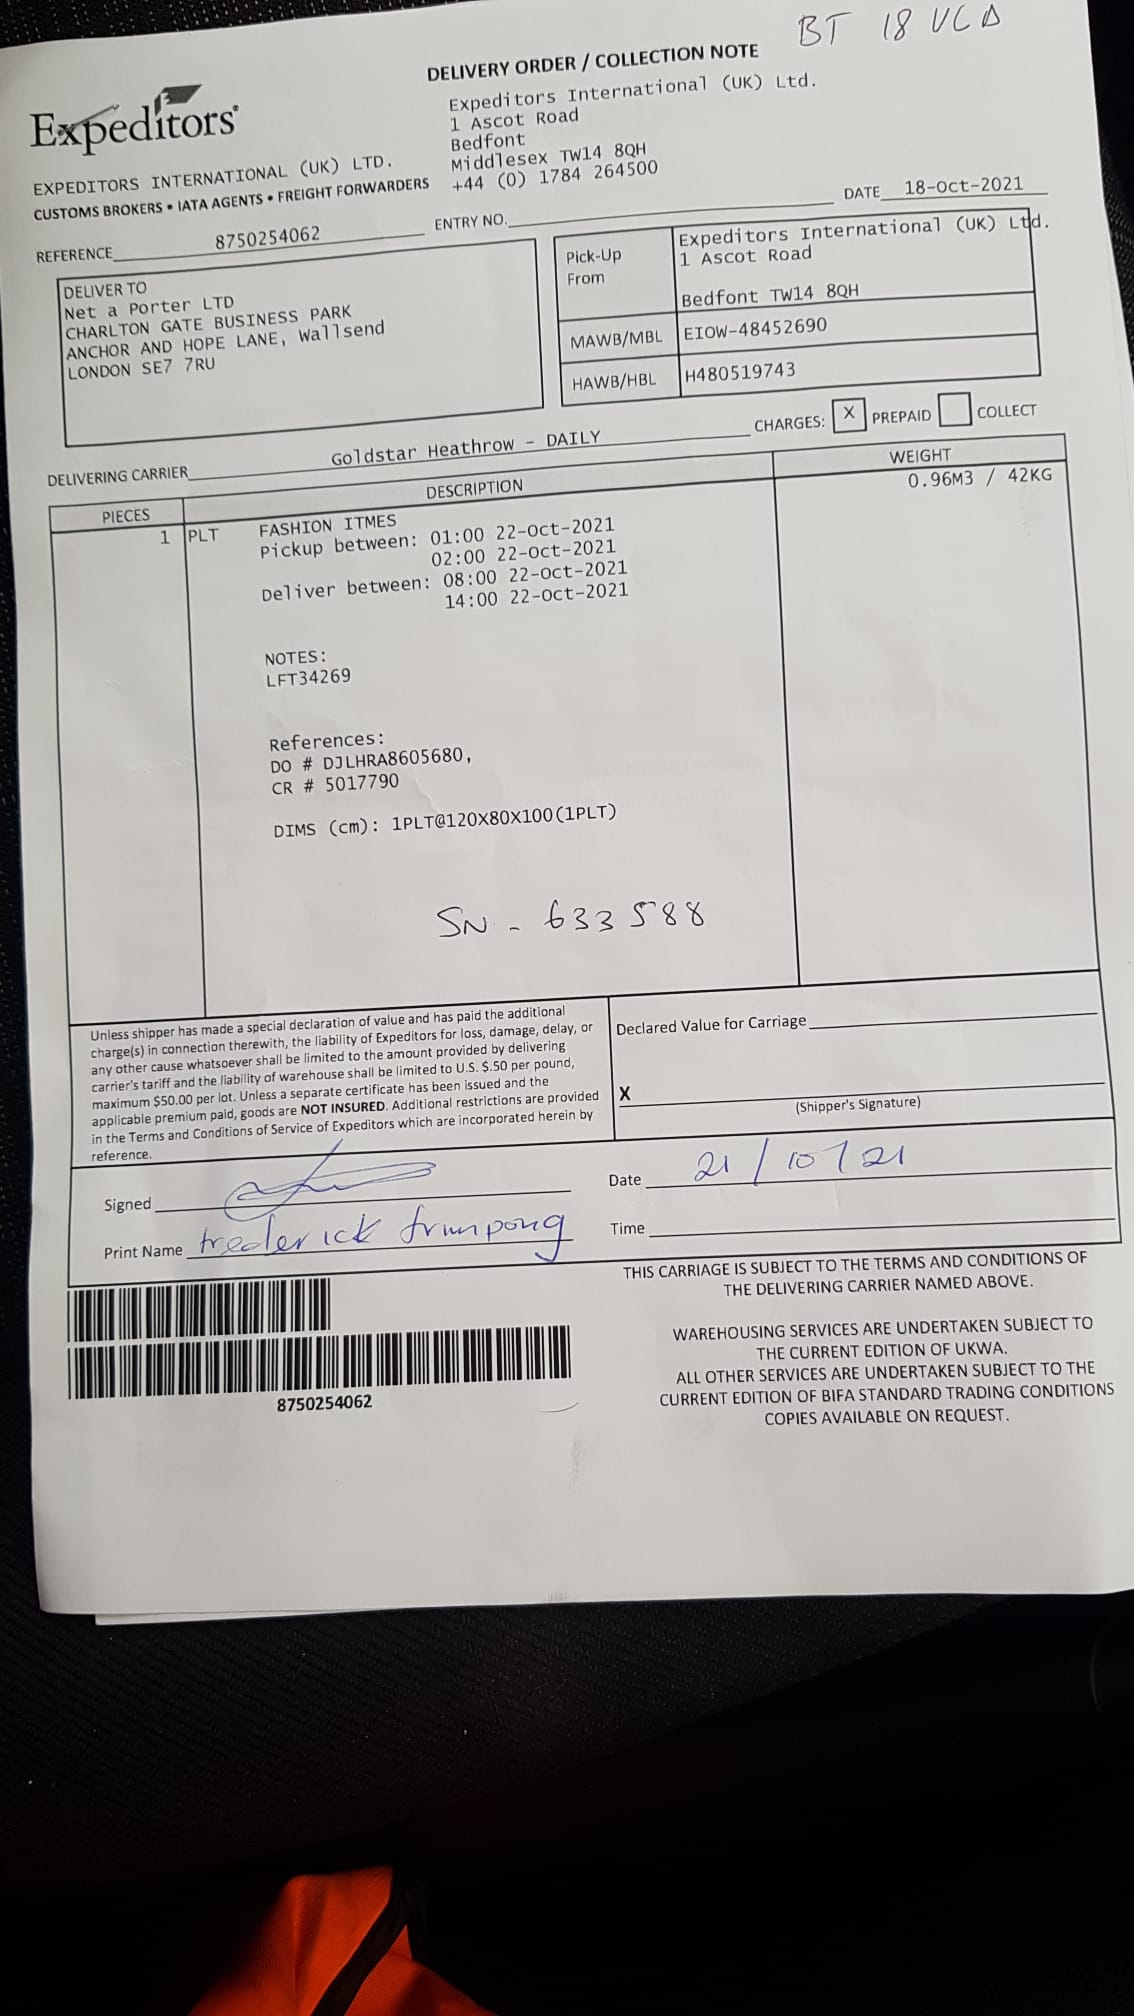 BT 18 VCA
DELIVERY ORDER / COLLECTION NOTE
Expeditors®
Expeditors International (UK) Ltd.
1 Ascot Road
Bedfont
Middlesex TW14 8QH
+44 (0) 1784 264500
EXPEDITORS INTERNATIONAL (UK) LTD.
CUSTOMS BROKERS • IATA AGENTS • FREIGHT FORWARDERS
DATE 18-Oct-2021
REFERENCE 8750254062 ENTRY NO.
DELIVER TO
Net a Porter LTD
CHARLTON GATE BUSINESS PARK
ANCHOR AND HOPE LANE, Wallsend
LONDON SE7 7RU
Pick-Up From
Expeditors International (UK) Ltd.
1 Ascot Road
Bedfont TW14 8QH
MAWB/MBL EIOW-48452690
HAWB/HBL H480519743
CHARGES: X PREPAID COLLECT
DELIVERING CARRIER Goldstar Heathrow - DAILY
PIECES DESCRIPTION WEIGHT
1 PLT FASHION ITMES 0.96M3 / 42KG
Pickup between: 01:00 22-Oct-2021
02:00 22-Oct-2021
Deliver between: 08:00 22-Oct-2021
14:00 22-Oct-2021
NOTES:
LFT34269
References:
DO # DJLHRA8605680,
CR # 5017790
DIMS (cm): 1PLT@120X80X100(1PLT)
SN - 633588
Unless shipper has made a special declaration of value and has paid the additional
charge(s) in connection therewith, the liability of Expeditors for loss, damage, delay, or
any other cause whatsoever shall be limited to the amount provided by delivering
carrier's tariff and the liability of warehouse shall be limited to U.S. $.50 per pound,
maximum $50.00 per lot. Unless a separate certificate has been issued and the
applicable premium paid, goods are NOT INSURED. Additional restrictions are provided
in the Terms and Conditions of Service of Expeditors which are incorporated herein by
reference.
Declared Value for Carriage
X
(Shipper's Signature)
Signed
Date 21/10/21
Print Name frederick frimpong
Time
THIS CARRIAGE IS SUBJECT TO THE TERMS AND CONDITIONS OF
THE DELIVERING CARRIER NAMED ABOVE.
WAREHOUSING SERVICES ARE UNDERTAKEN SUBJECT TO
THE CURRENT EDITION OF UKWA.
ALL OTHER SERVICES ARE UNDERTAKEN SUBJECT TO THE
CURRENT EDITION OF BIFA STANDARD TRADING CONDITIONS
COPIES AVAILABLE ON REQUEST.
8750254062